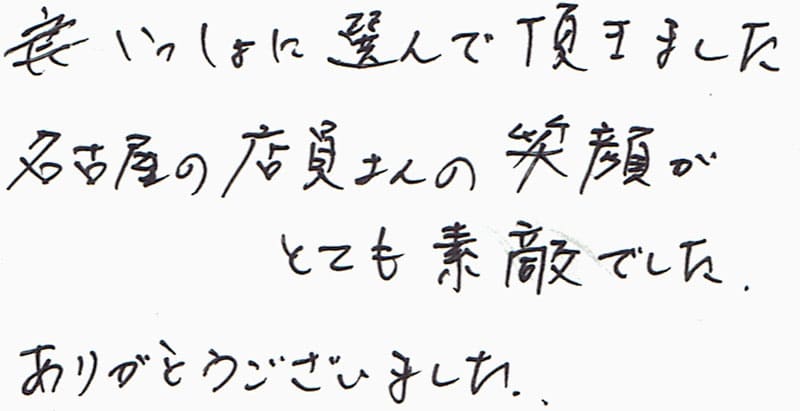 いっしょに選んで頂きました
名古屋の店員さんの笑顔が
とても素敵でした.
ありがとうございました..